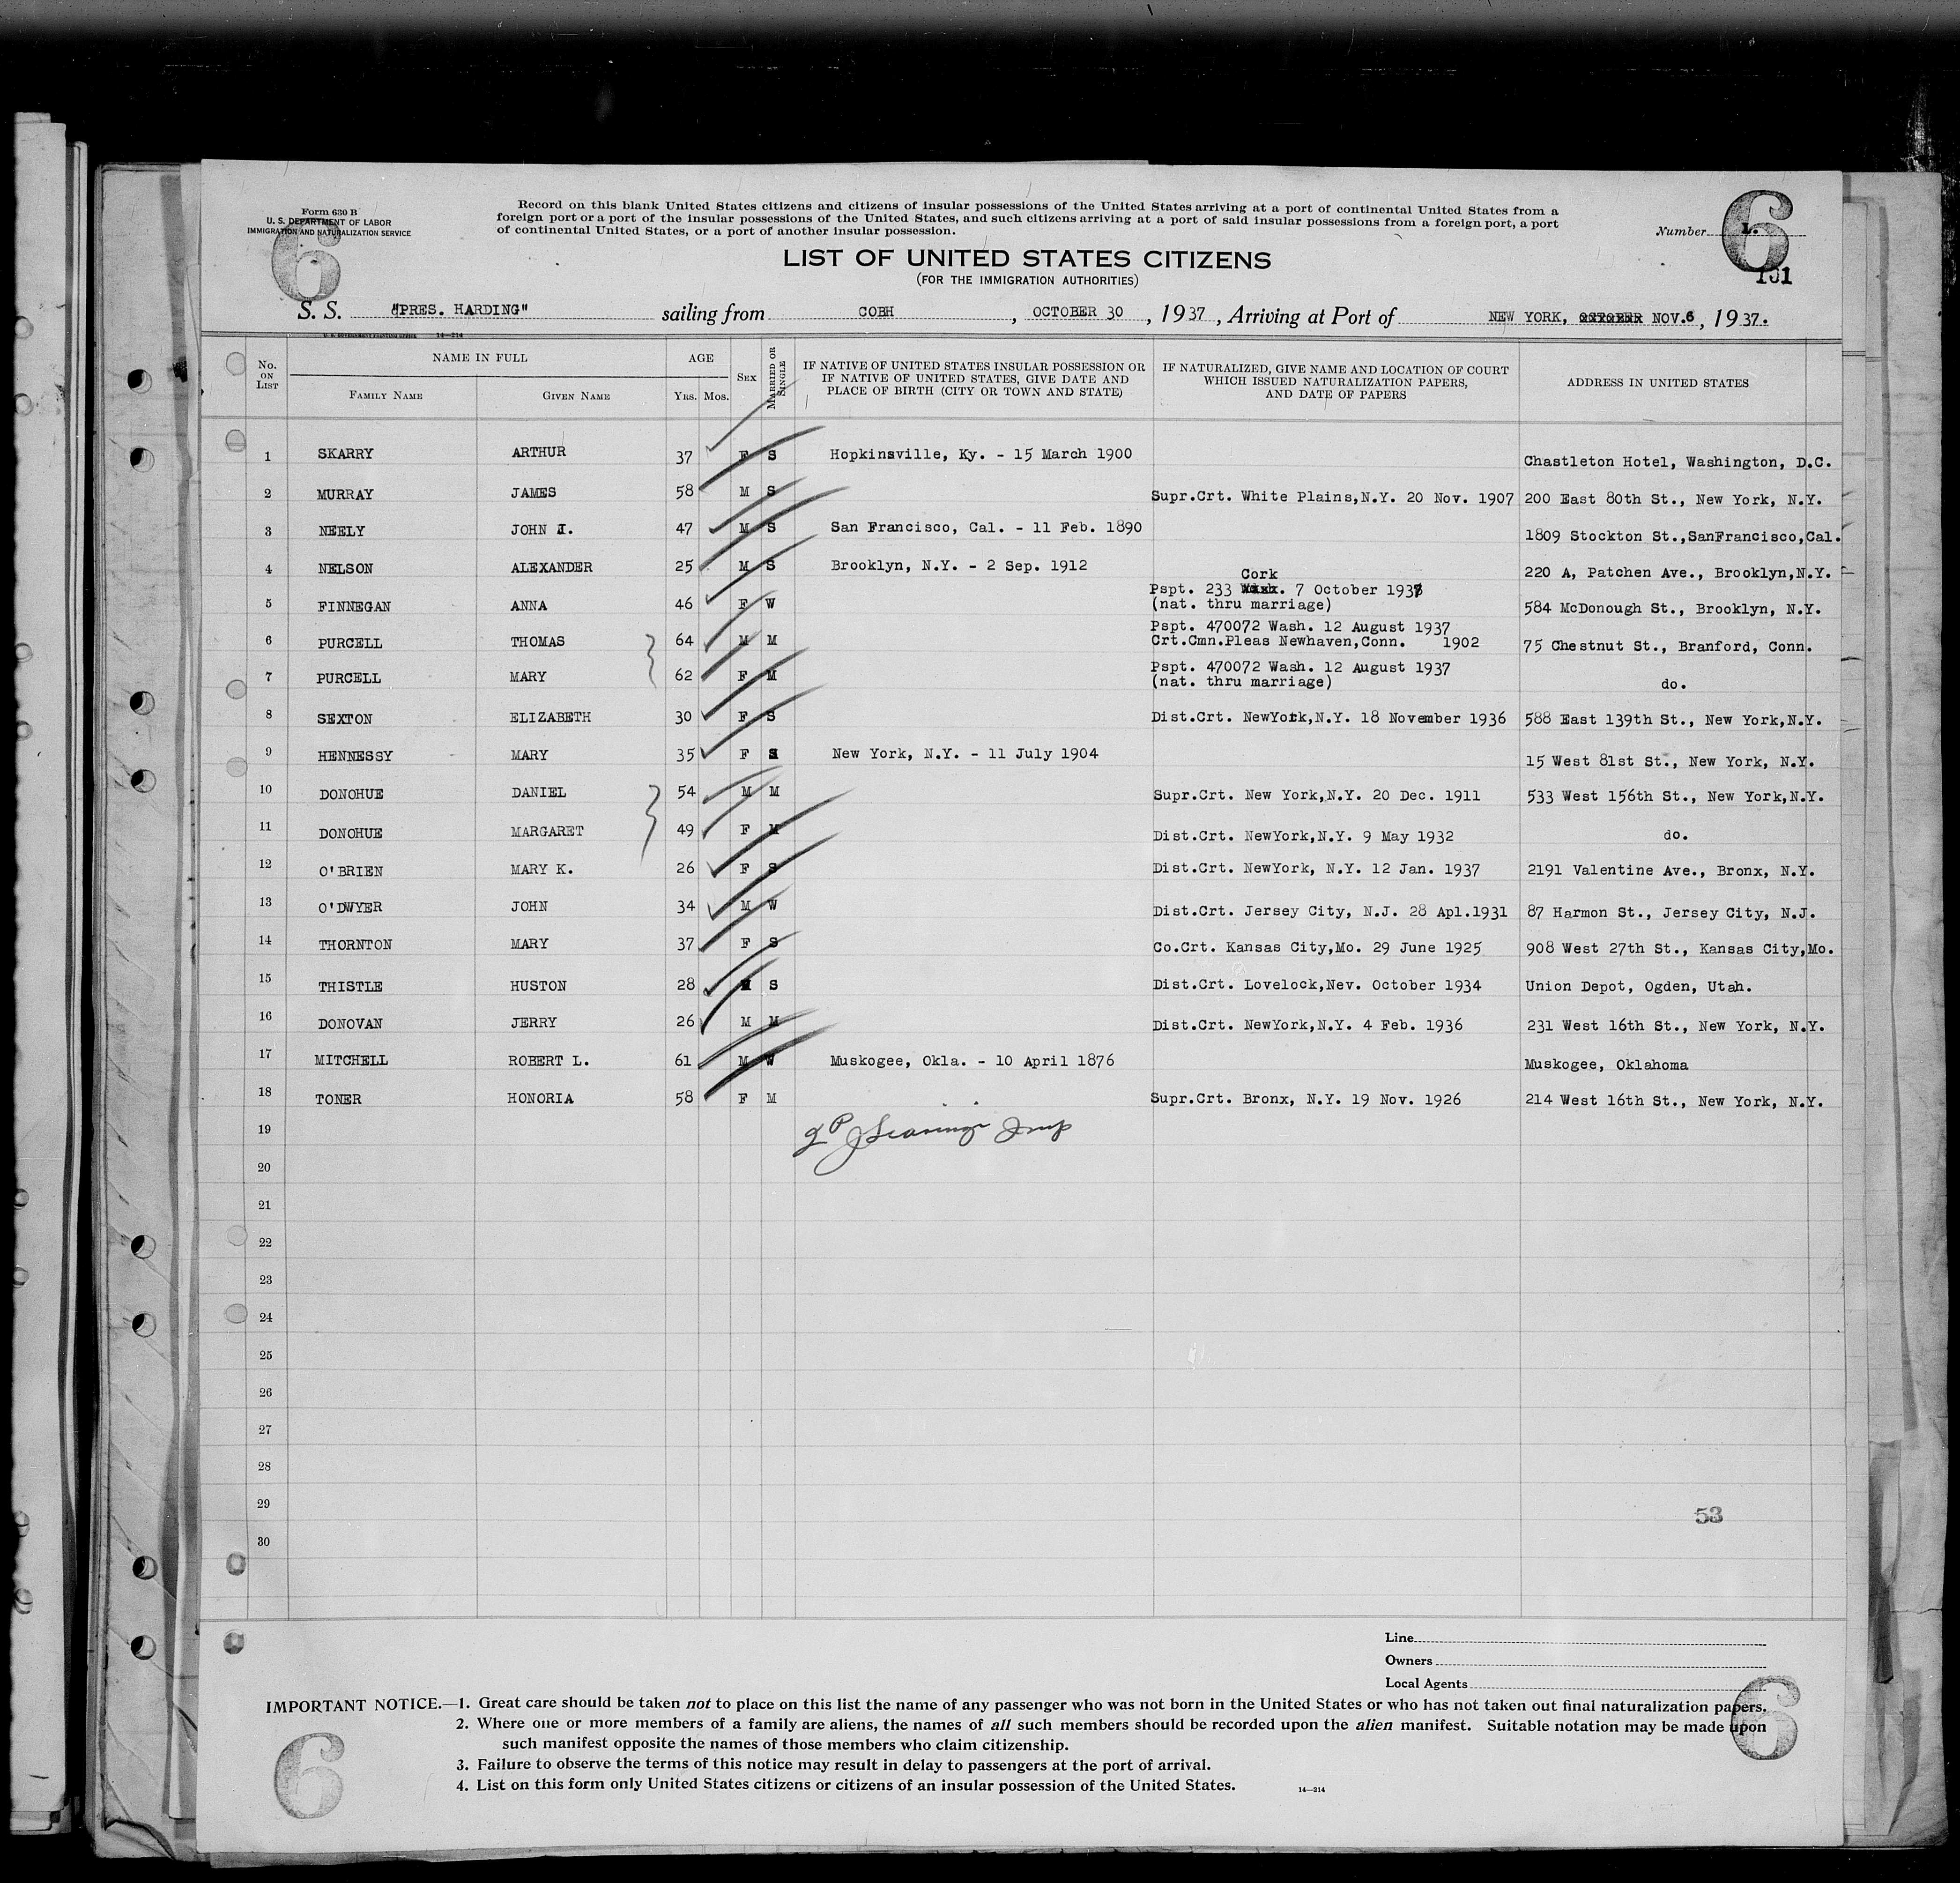 Form 630 B
U. S. DEPARTMENT OF LABOR
IMMIGRATION AND NATURALIZATION SERVICE
6
Record on this blank United States citizens and citizens of insular possessions of the United States arriving at a port of continental United States from a
foreign port or a port of the insular possessions of the United States, and such citizens arriving at a port of said insular possessions from a foreign port, a port
of continental United States, or a port of another insular possession.
Number 1.
6
LIST OF UNITED STATES CITIZENS
(FOR THE IMMIGRATION AUTHORITIES)
S. S. "PRES. HARDING" sailing from COBH, OCTOBER 30, 1937, Arriving at Port of NEW YORK, OCTOBER NOV.6, 1937.
U. S. GOVERNMENT PRINTING OFFICE 14—214
No. ON LIST NAME IN FULL AGE SEX MARRIED OR SINGLE IF NATIVE OF UNITED STATES INSULAR POSSESSION OR IF NATIVE OF UNITED STATES, GIVE DATE AND PLACE OF BIRTH (CITY OR TOWN AND STATE) IF NATURALIZED, GIVE NAME AND LOCATION OF COURT WHICH ISSUED NATURALIZATION PAPERS, AND DATE OF PAPERS ADDRESS IN UNITED STATES
FAMILY NAME GIVEN NAME YRS. MOS.
1 SKARRY ARTHUR 37 F S Hopkinsville, Ky. - 15 March 1900 Chastleton Hotel, Washington, D.C.
2 MURRAY JAMES 58 M S Supr.Crt. White Plains,N.Y. 20 Nov. 1907 200 East 80th St., New York, N.Y.
3 NEELY JOHN I. 47 M S San Francisco, Cal. - 11 Feb. 1890 1809 Stockton St.,SanFrancisco,Cal.
4 NELSON ALEXANDER 25 M S Brooklyn, N.Y. - 2 Sep. 1912 220 A, Patchen Ave., Brooklyn,N.Y.
Cork
5 FINNEGAN ANNA 46 F W Pspt. 233 Wash. 7 October 1937 584 McDonough St., Brooklyn, N.Y.
(nat. thru marriage)
Pspt. 470072 Wash. 12 August 1937
6 PURCELL THOMAS 64 M M Crt.Cmn.Pleas Newhaven,Conn. 1902 75 Chestnut St., Branford, Conn.
Pspt. 470072 Wash. 12 August 1937
7 PURCELL MARY 62 F M (nat. thru marriage) do.
8 SEXTON ELIZABETH 30 F S Dist.Crt. NewYork,N.Y. 18 November 1936 588 East 139th St., New York,N.Y.
9 HENNESSY MARY 35 F S New York, N.Y. - 11 July 1904 15 West 81st St., New York, N.Y.
10 DONOHUE DANIEL 54 M M Supr.Crt. New York,N.Y. 20 Dec. 1911 533 West 156th St., New York,N.Y.
11 DONOHUE MARGARET 49 F M Dist.Crt. NewYork,N.Y. 9 May 1932 do.
12 O'BRIEN MARY K. 26 F S Dist.Crt. NewYork, N.Y. 12 Jan. 1937 2191 Valentine Ave., Bronx, N.Y.
13 O'DWYER JOHN 34 M W Dist.Crt. Jersey City, N.J. 28 Apl.1931 87 Harmon St., Jersey City, N.J.
14 THORNTON MARY 37 F S Co.Crt. Kansas City,Mo. 29 June 1925 908 West 27th St., Kansas City,Mo.
15 THISTLE HUSTON 28 M S Dist.Crt. Lovelock,Nev. October 1934 Union Depot, Ogden, Utah.
16 DONOVAN JERRY 26 M M Dist.Crt. NewYork,N.Y. 4 Feb. 1936 231 West 16th St., New York, N.Y.
17 MITCHELL ROBERT L. 61 M W Muskogee, Okla. - 10 April 1876 Muskogee, Oklahoma
18 TONER HONORIA 58 F M Supr.Crt. Bronx, N.Y. 19 Nov. 1926 214 West 16th St., New York, N.Y.
19
20
21
22
23
24
25
26
27
28
29
53
30
Line
Owners
Local Agents
IMPORTANT NOTICE.—1. Great care should be taken not to place on this list the name of any passenger who was not born in the United States or who has not taken out final naturalization papers.
2. Where one or more members of a family are aliens, the names of all such members should be recorded upon the alien manifest. Suitable notation may be made upon
such manifest opposite the names of those members who claim citizenship.
3. Failure to observe the terms of this notice may result in delay to passengers at the port of arrival.
4. List on this form only United States citizens or citizens of an insular possession of the United States. 14—214
6
6